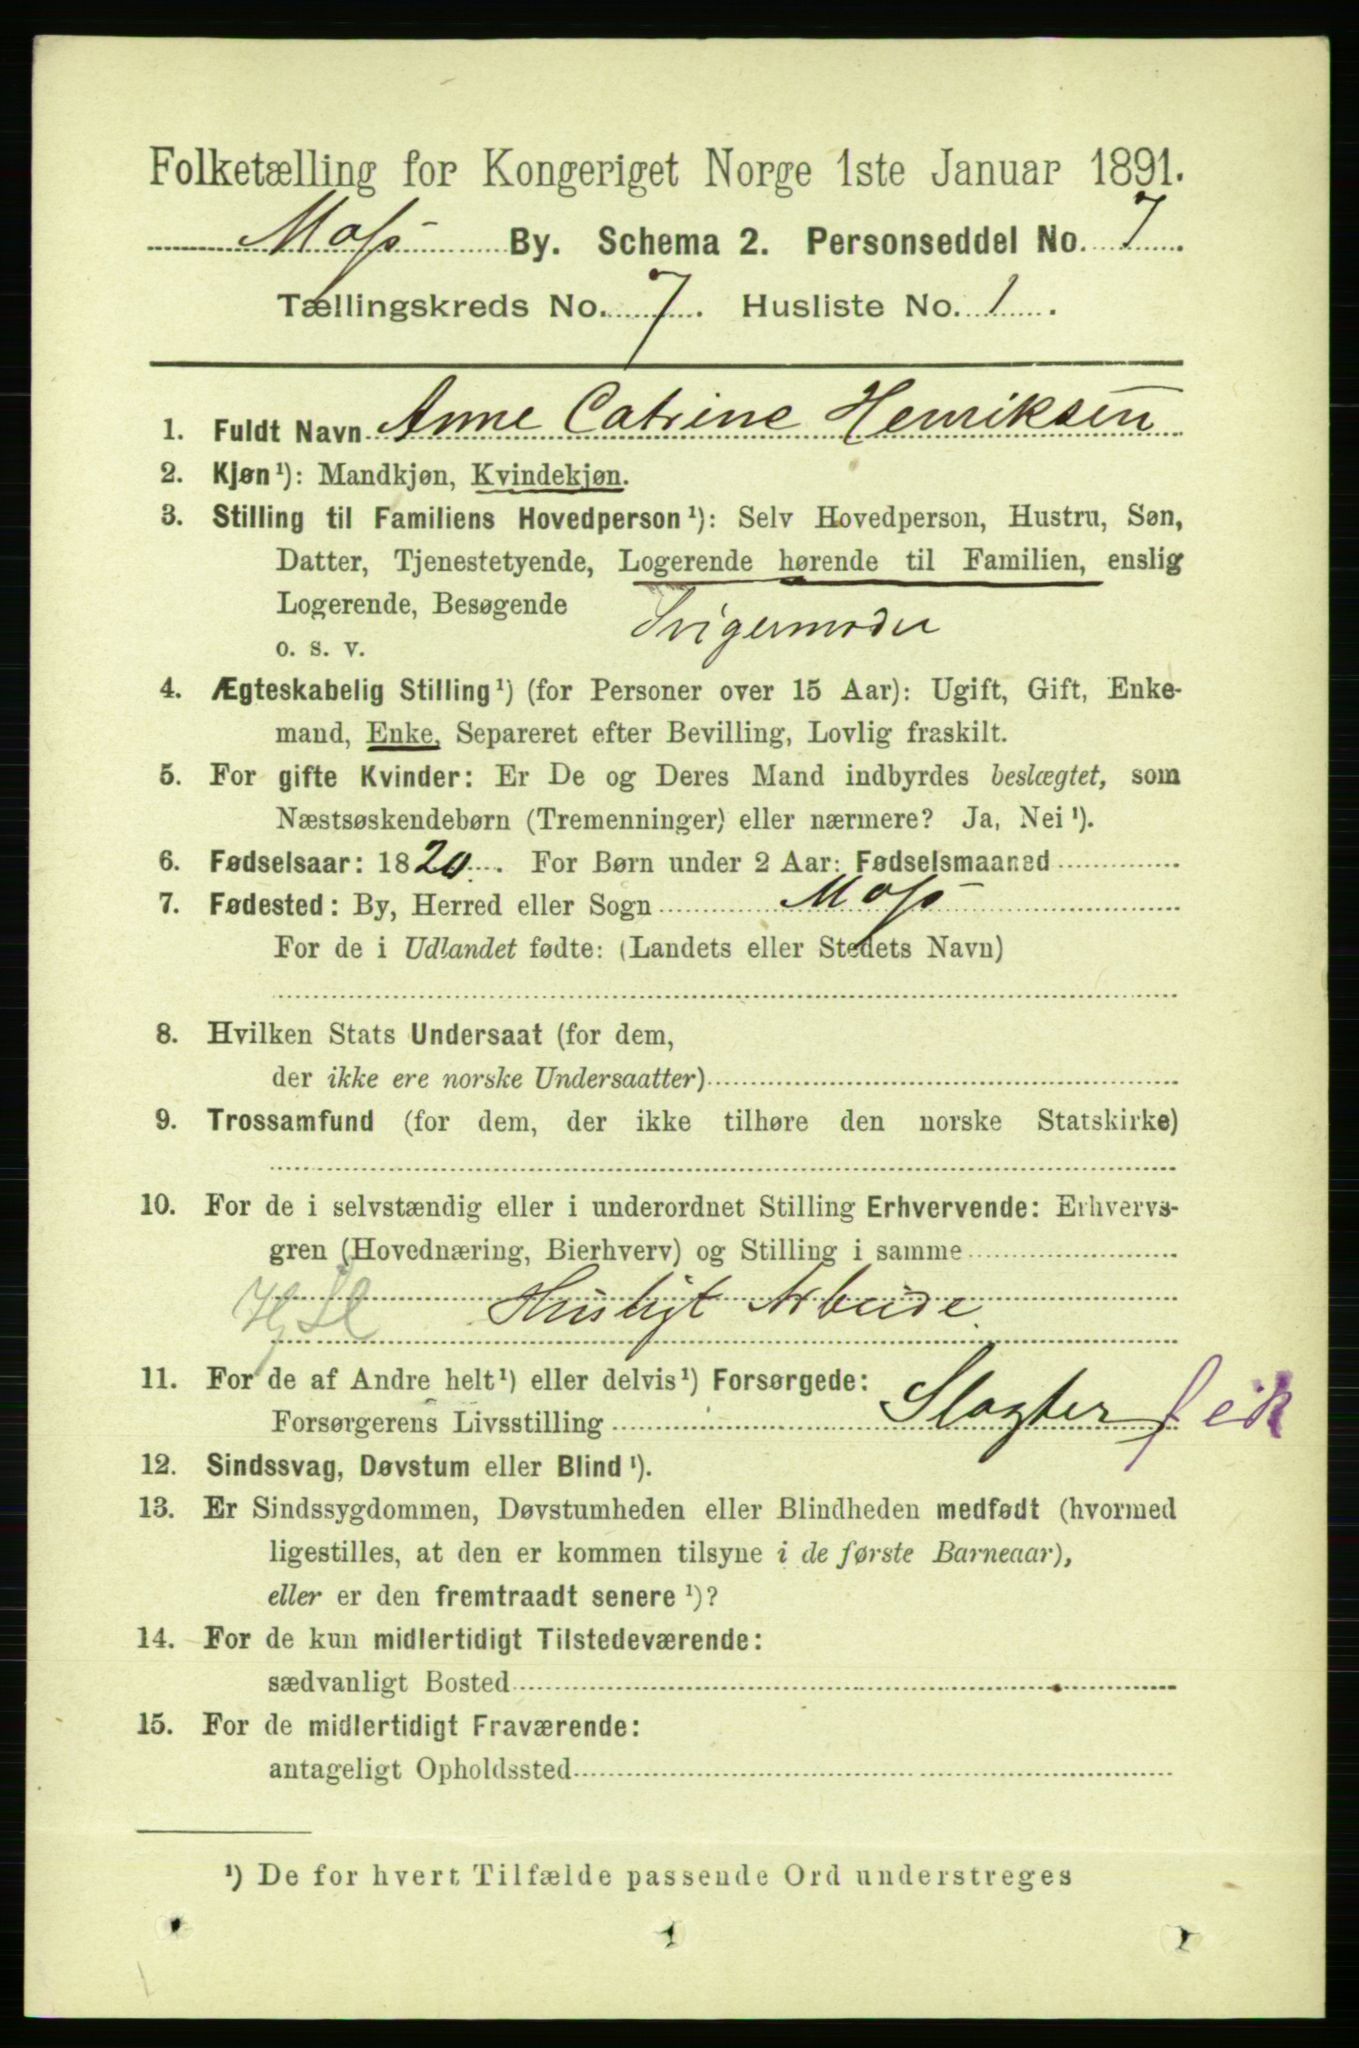 Folketælling for Kongeriget Norge 1ste Januar 1891.
Moss By. Schema 2. Personseddel No. 7.
Tællingskreds No. 7. Husliste No. 1.
1. Fuldt Navn Anne Catrine Henriksen
2. Kjøn¹): Mandkjøn, Kvindekjøn.
3. Stilling til Familiens Hovedperson¹): Selv Hovedperson, Hustru, Søn,
Datter, Tjenestetyende, Logerende hørende til Familien, enslig
Logerende, Besøgende
o. s. v. Svigermoder
4. Ægteskabelig Stilling¹) (for Personer over 15 Aar): Ugift, Gift, Enke-
mand, Enke, Separeret efter Bevilling, Lovlig fraskilt.
5. For gifte Kvinder: Er De og Deres Mand indbyrdes beslægtet, som
Næstsøskendebørn (Tremenninger) eller nærmere? Ja, Nei¹).
6. Fødselsaar: 1820. For Børn under 2 Aar: Fødselsmaaned
7. Fødested: By, Herred eller Sogn Moss
For de i Udlandet fødte: (Landets eller Stedets Navn)
8. Hvilken Stats Undersaat (for dem,
der ikke ere norske Undersaatter)
9. Trossamfund (for dem, der ikke tilhøre den norske Statskirke)
10. For de i selvstændig eller i underordnet Stilling Erhvervende: Erhvervs-
gren (Hovednæring, Bierhverv) og Stilling i samme
Husligt Arbeide.
11. For de af Andre helt¹) eller delvis¹) Forsørgede:
Forsørgerens Livsstilling Slagter
12. Sindssvag, Døvstum eller Blind¹).
13. Er Sindssygdommen, Døvstumheden eller Blindheden medfødt (hvormed
ligestilles, at den er kommen tilsyne i de første Barneaar),
eller er den fremtraadt senere¹)?
14. For de kun midlertidigt Tilstedeværende:
sædvanligt Bosted
15. For de midlertidigt Fraværende:
antageligt Opholdssted
¹) De for hvert Tilfælde passende Ord understreges